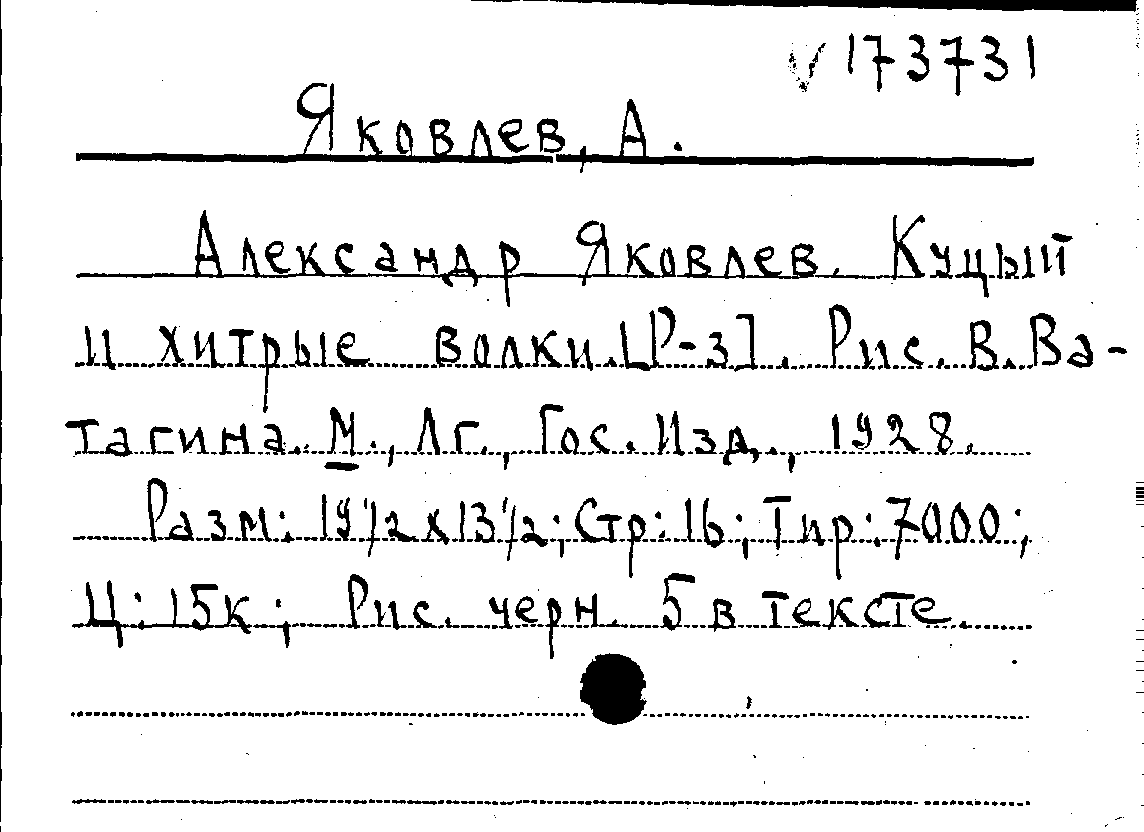 V 173731
Яковлев, А.
Александр Яковлев. Куцый
и хитрые волки. [Р-з]. Рис. В. Ва-
тагина. М., Лг., Гос. Изд., 1928.
Разм: 19 1/2 х 13 1/2; Стр: 16; Тир: 7000;
Ц: 15к; Рис. черн. 5 в тексте.